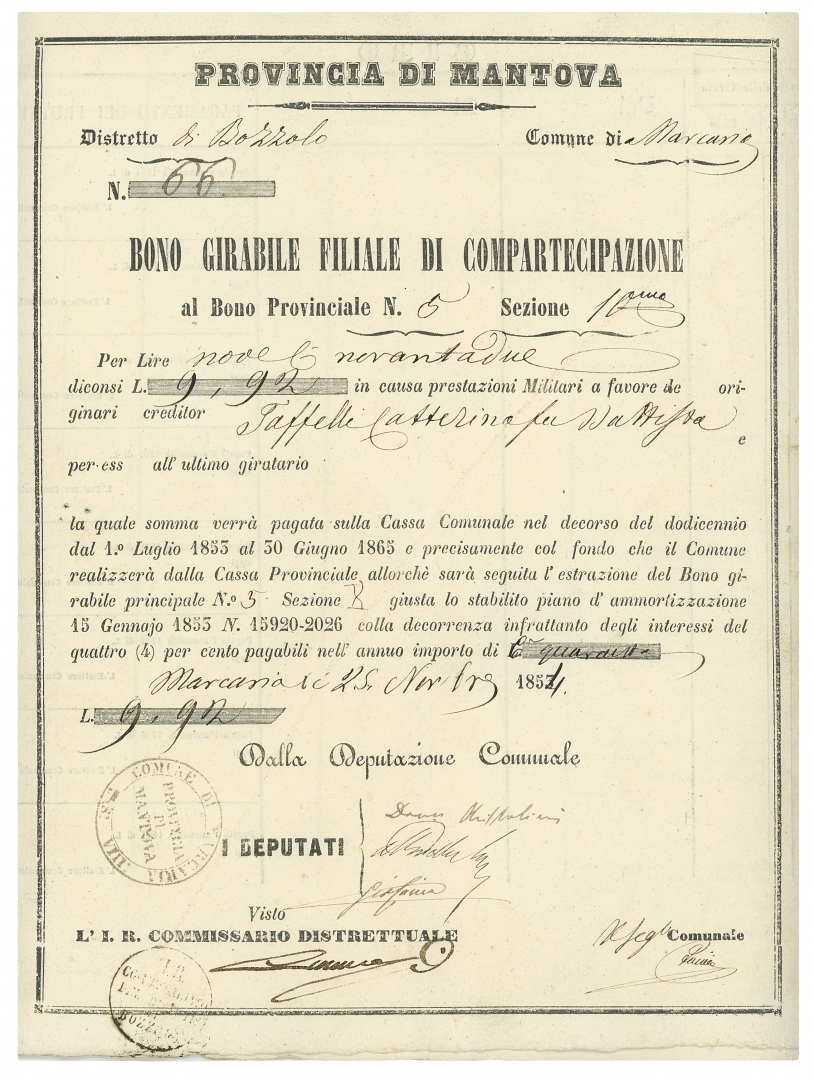 PROVINCIA DI MANTOVA
Distretto di Bozzolo Comune di Marcaria
N. 66
BONO GIRABILE FILIALE DI COMPARTECIPAZIONE
al Bono Provinciale N. 5 Sezione 10ma
Per Lire nove C novantadue
diconsi L. 9,92 in causa prestazioni Militari a favore de ori-
ginari creditor Taffelli Catterina fu Battista e
per ess all' ultimo giratario
la quale somma verrà pagata sulla Cassa Comunale nel decorso del dodicennio
dal 1.º Luglio 1853 al 30 Giugno 1865 e precisamente col fondo che il Comune
realizzerà dalla Cassa Provinciale allorchè sarà seguita l' estrazione del Bono gi-
rabile principale N.º 5 Sezione X giusta lo stabilito piano d' ammortizzazione
15 Gennajo 1853 N. 15920-2026 colla decorrenza infrattanto degli interessi del
quattro (4) per cento pagabili nell' annuo importo di
Marcaria li 25 Novbre 1854.
L. 9,92
Dalla Deputazione Comunale
COMUNE DI MARCARIA
PROVINCIA
DI
MANTOVA
I DEPUTATI
Visto
L' I. R. COMMISSARIO DISTRETTUALE
Il Segrio Comunale
I. R.
BOZZOLO